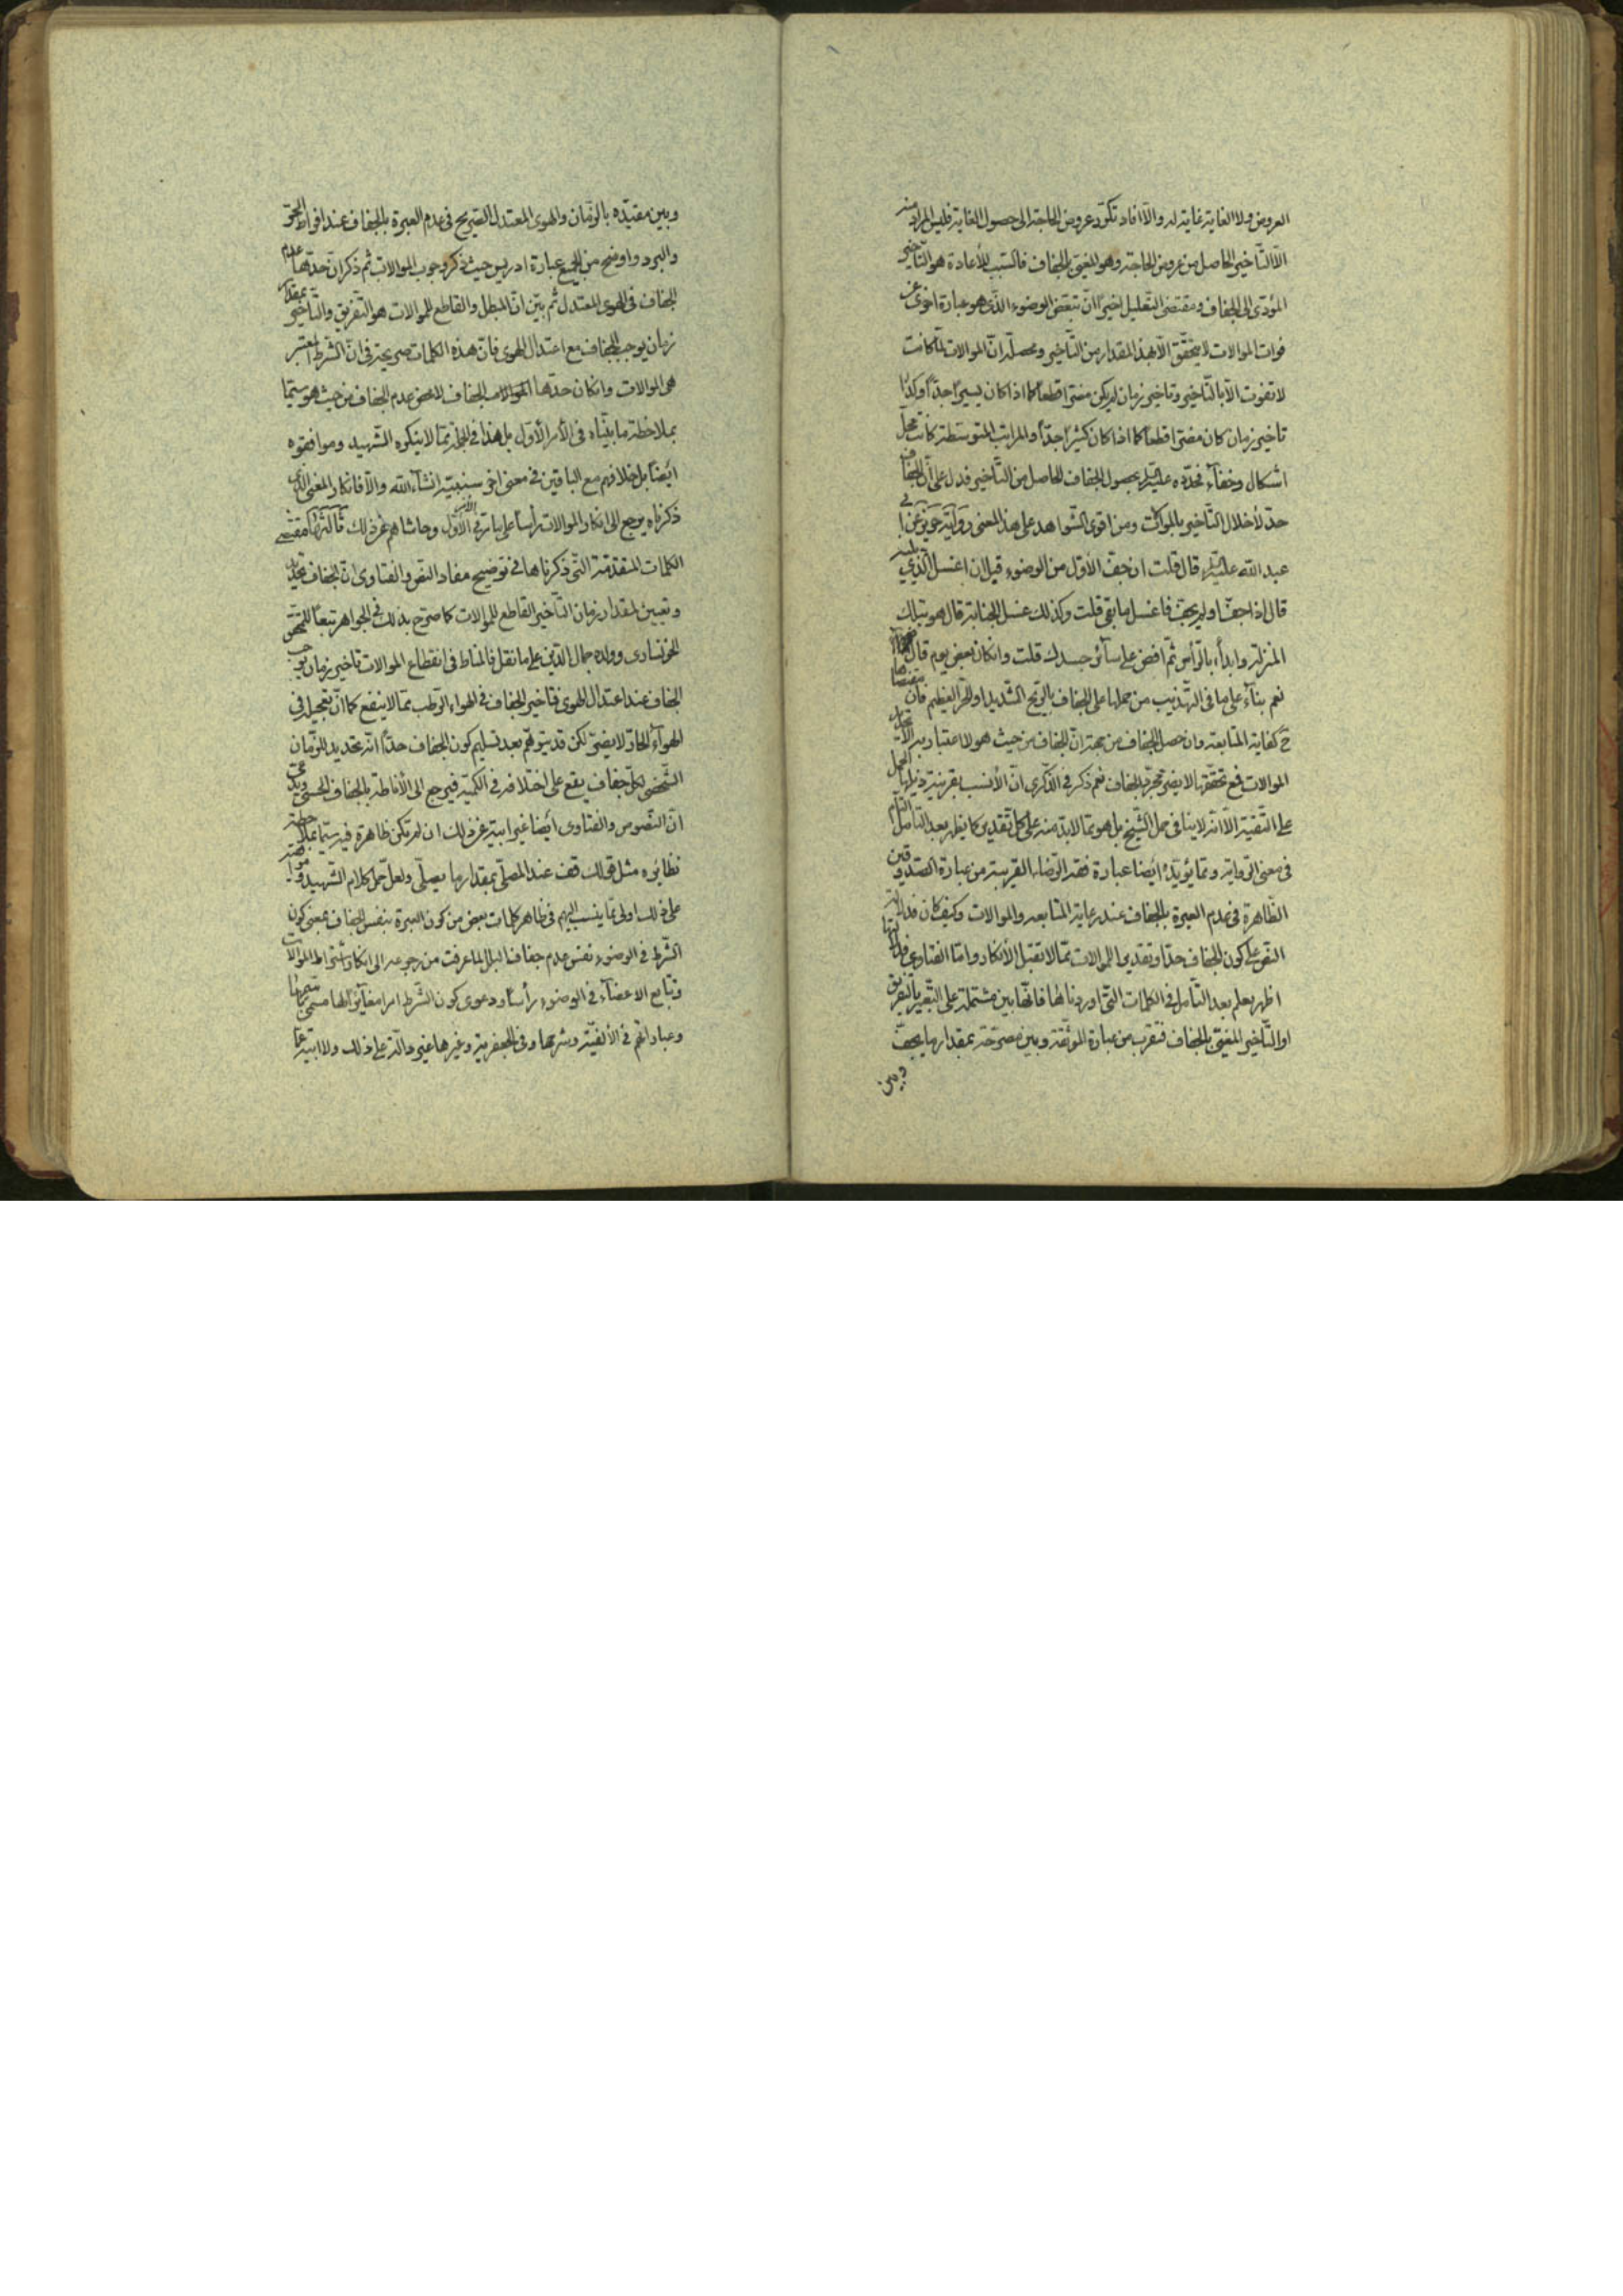 العروض ولا الغاية غاية له والّا افاد تكرّر عروض الحاجة الى حصول الغاية فليس المراد منه
الّا التّأخير الحاصل من عروض الحاجة وهو المغيّى بالجفاف فالسّبب للأعادة هو التّأخير
المؤدّى الى الجفاف ومقتضى التّعليل اخيرًا انّ تبعّض الوضوء الّذى هو عبارة اخرى عن
فوات الموالات لا يتحقّق الّا بهذا المقدار من التّأخير ومحصّله انّ الموالات لمّا كانت
لا تفوت الّا بالتّأخير وتأخير زمان لم يكن مضرّا قطعًا كما اذا كان يسيرًا جدّاً وكذا
تاخير زمان كان مضرّا قطعًا كما اذا كان كثيرًا جدّاً والمراتب المتوسّطة كانت محلّ
اشكال وخفآء فحدّده عليه السّلم بحصول الجفاف الحاصل من التّأخير فدل على انّ الجفاف
حدّ لأخلال التّأخير بالموالات ومن اقوى الشّواهد على هذا المعنى رواية حريز عن ابى
عبد الله عليه السّلم قال قلت ان جفّ الأوّل من الوضوء قبل ان اغسل الّذي يليه
قال اذا جفّ او لم يجفّ فاغسل ما بقى قلت وكذلك غسل الجنابة قال هو بتلك
المنزلة وابدأ بالرّأس ثمّ افض على سآئر جسدك قلت وان كان بعض يوم قال
نعم بنآءً على ما فى التّهذيب من حملها على الجفاف بالرّيح الشّديد او الحرّ العظيم فان مقتضاها
ح كفاية المتابعة وان حصل الجفاف من جهة انّ الجفاف من حيث هو لا اعتبار به الّا لتحديد
الموالات فمع تحقّقها لا يضرّ مجرّد الجفاف نعم ذكر فى الذّكرى انّ الأنسب بقرينة ذيلها الحمل
على التّقيّة الّا انّه لا ينافى حمل الشّيخ بل هو ممّا لا بدّ منه على كلّ تقدير كما يظهر بعد التأمّل التّام
فى معنى الرّواية وممّا يؤيّده ايضا عبارة فقه الرّضاء القريبة من عبارة الصّدوقين
الظّاهرة فى عدم العبرة بالجفاف عند رعاية المتابعه والموالات وكيف كان فدلالة
النّصّ على كون الجفاف حدّا وتقديرا للموالات ممّا لا تقبل الأنكار وامّا الفتاوى فدلالتها
اظهر يعلم بعد التّأمل فى الكلمات الّتى اوردناها فانّها بين مشتملة على التّعبير بالتّفريق
او التّأخير المغيّى بالجفاف فتقرب من عبارة الموثّقة وبين مصرّحة بمقدار ما يجفّ
وبين
وبين مقيّده بالزّمان والهوى المعتدل الصّريح فى عدم العبرة بالجفاف عند افراط الحرّ
والبرد واوضح من الجميع عبارة ادريس حيث ذكر وجوب الموالات ثم ذكر انّ حدّها عدم
الجفاف فى الهوى المعتدل ثم بيّن انّ المبطل والقاطع للموالات هو التّفريق والتّأخير بمقدار
زمان يوجب الجفاف مع اعتدال الهوى فانّ هذه الكلمات صريحة فى انّ الشّرط المعتبر
هى الموالات وان كان حدّها الجفاف لا محض عدم الجفاف من حيث هو سيّما
بملاحظة ما بيّنّاه فى الأمر الأوّل بل هذا فى الجملة ممّا لا ينكره الشّهيد وموافقوه
ايضا بل خلافهم مع الباقين فى معنى اخر سنبيّنه انشآء الله والّا فانكار المعنى الّذى
ذكرناه يرجع الى انكار الموالات رأسا على ما مرّ فى الأمر الأوّل وحاشاهم عن ذلك ثالثها مقتضى
الكلمات المتقدّمة الّتى ذكرناها فى توضيح مفاد النصّ والفتاوى انّ الجفاف تحديد
وتعيين لمقدار زمان التّأخير القاطع للموالات كما صرّح بذلك فى الجواهر تبعًا للمحقّق
الخونسارى وولده جمال الدّين على ما نقل فالمناط فى انقطاع الموالات تاخير زمان يوجب
الجفاف عند اعتدال الهوى فتاخير الجفاف فى الهواء الرّطب ممّا لا ينفع كما انّ تعجيل فى
الهوآء الحارّ لا يضرّ لكن قد يتوهّم بعد تسليم كون الجفاف حدًّا انّه تحديد للزّمان
الشّخصى لكلّ جفاف يقع على اختلافه فى الكميّة فيرجع الى الأناطة بالجفاف الحسّى ويدّعى
انّ النّصوص والفتاوى ايضا غير ابية عن ذلك ان لم تكن ظاهرة فيه سيّما بملاحظة
نظايره مثل قولك قف عند المصلّى بمقدار ما يصلّى ولعلّ حمل كلام الشّهيد وموافقيه
على ذلك اولى ممّا ينسب اليهم فى ظاهر كلمات بعض من كون العبرة بنفس الجفاف بمعنى كون
الشّرط فى الوضوء نفس عدم جفاف البلل لما عرفت من رجوعه الى انكار اشتراط الموالات
وتتابع الاعضآء فى الوضوء رأسا ودعوى كون الشّرط امرا مغآئرا لها مسمّى باسمها
وعباراتهم فى الألفيّة وشرحها وفى الجعفرية وغيرها غير دالّة على ذلك ولا ابية عمّا